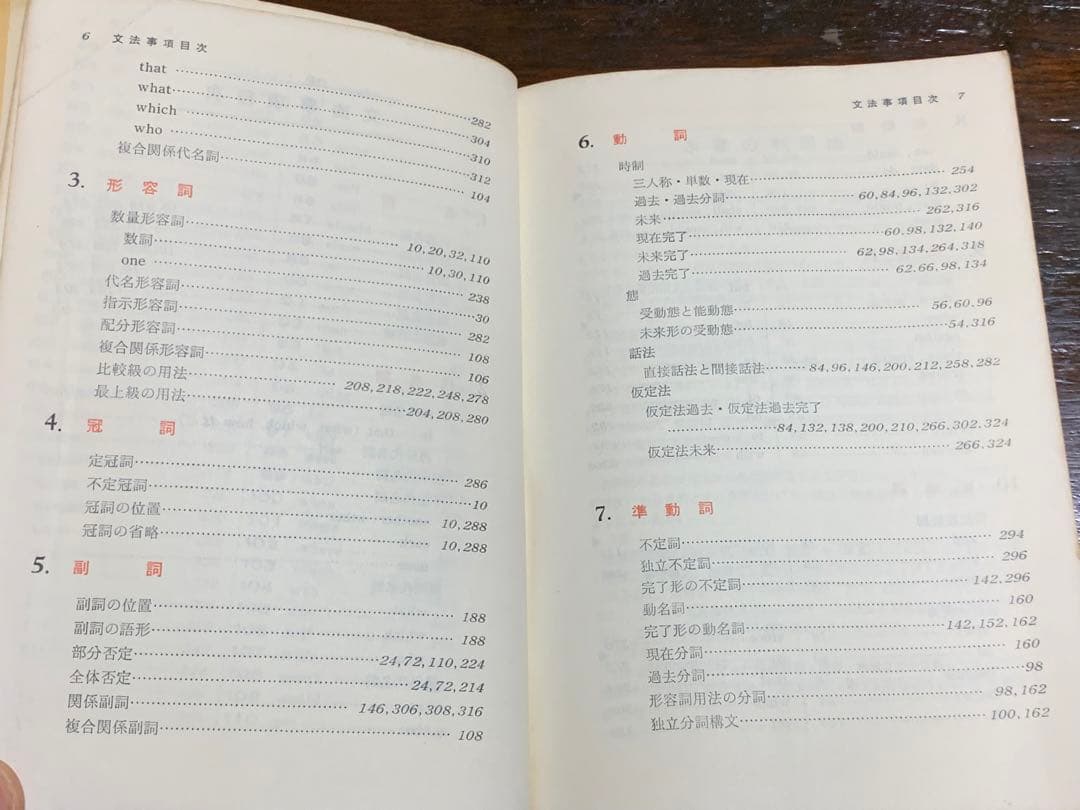 6 文法事項目次
that ……………… 282
what ……………… 304
which ……………… 310
who ……………… 312
複合関係代名詞 ……………… 104
3. 形容詞
数量形容詞 ……………… 10,20,32,110
数詞 ……………… 10,30,110
one ……………… 238
代名形容詞 ……………… 30
指示形容詞 ……………… 282
配分形容詞 ……………… 108
複合関係形容詞 ……………… 106
比較級の用法 ……………… 208,218,222,248,278
最上級の用法 ……………… 204,208,280
4. 冠詞
定冠詞 ……………… 286
不定冠詞 ……………… 10
冠詞の位置 ……………… 10,288
冠詞の省略 ……………… 10,288
5. 副詞
副詞の位置 ……………… 188
副詞の語形 ……………… 188
部分否定 ……………… 24,72,110,224
全体否定 ……………… 24,72,214
関係副詞 ……………… 146,306,308,316
複合関係副詞 ……………… 108
文法事項目次 7
6. 動詞
時制
三人称・単数・現在 ……………… 254
過去・過去分詞 ……………… 60,84,96,132,302
未来 ……………… 262,316
現在完了 ……………… 60,98,132,140
未来完了 ……………… 62,98,134,264,318
過去完了 ……………… 62.66,98,134
態
受動態と能動態 ……………… 56,60,96
未来形の受動態 ……………… 54,316
話法
直接話法と間接話法 ……………… 84,96,146,200,212,258,282
仮定法
仮定法過去・仮定法過去完了
……………… 84,132,138,200,210,266,302,324
仮定法未来 ……………… 266,324
7. 準動詞
不定詞 ……………… 294
独立不定詞 ……………… 296
完了形の不定詞 ……………… 142,296
動名詞 ……………… 160
完了形の動名詞 ……………… 142,152,162
現在分詞 ……………… 160
過去分詞 ……………… 98
形容詞用法の分詞 ……………… 98,162
独立分詞構文 ……………… 100,162